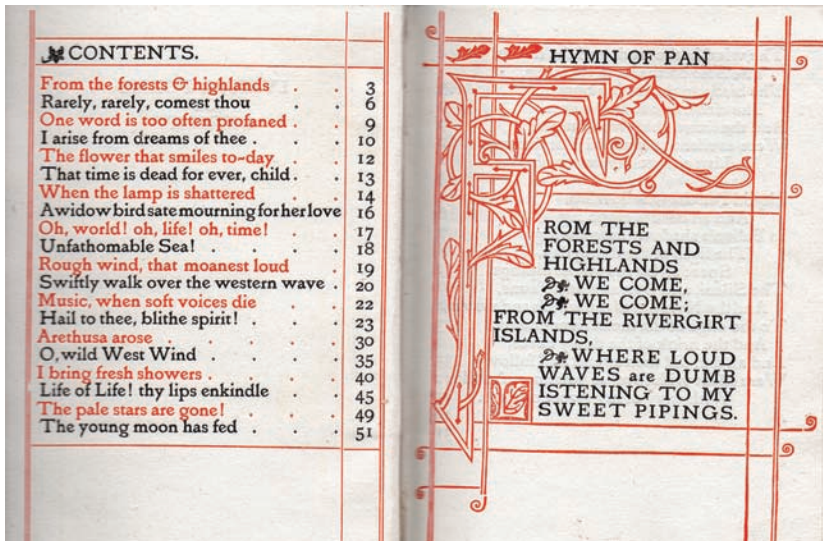 CONTENTS.
From the forests & highlands . . 3
Rarely, rarely, comest thou . . 6
One word is too often profaned . . 9
I arise from dreams of thee . . . 10
The flower that smiles to-day . . 12
That time is dead for ever, child . . 13
When the lamp is shattered . . 14
A widow bird sate mourning for her love 16
Oh, world! oh, life! oh, time! . . 17
Unfathomable Sea! . . . . 18
Rough wind, that moanest loud . . 19
Swiftly walk over the western wave . 20
Music, when soft voices die . . 22
Hail to thee, blithe spirit! . . . 23
Arethusa arose . . . . . 30
O, wild West Wind . . . . 35
I bring fresh showers . . . . 40
Life of Life! thy lips enkindle . . 45
The pale stars are gone! . . . 49
The young moon has fed . . . 51
HYMN OF PAN
FROM THE
FORESTS AND
HIGHLANDS
WE COME,
WE COME;
FROM THE RIVERGIRT
ISLANDS,
WHERE LOUD
WAVES are DUMB
LISTENING TO MY
SWEET PIPINGS.